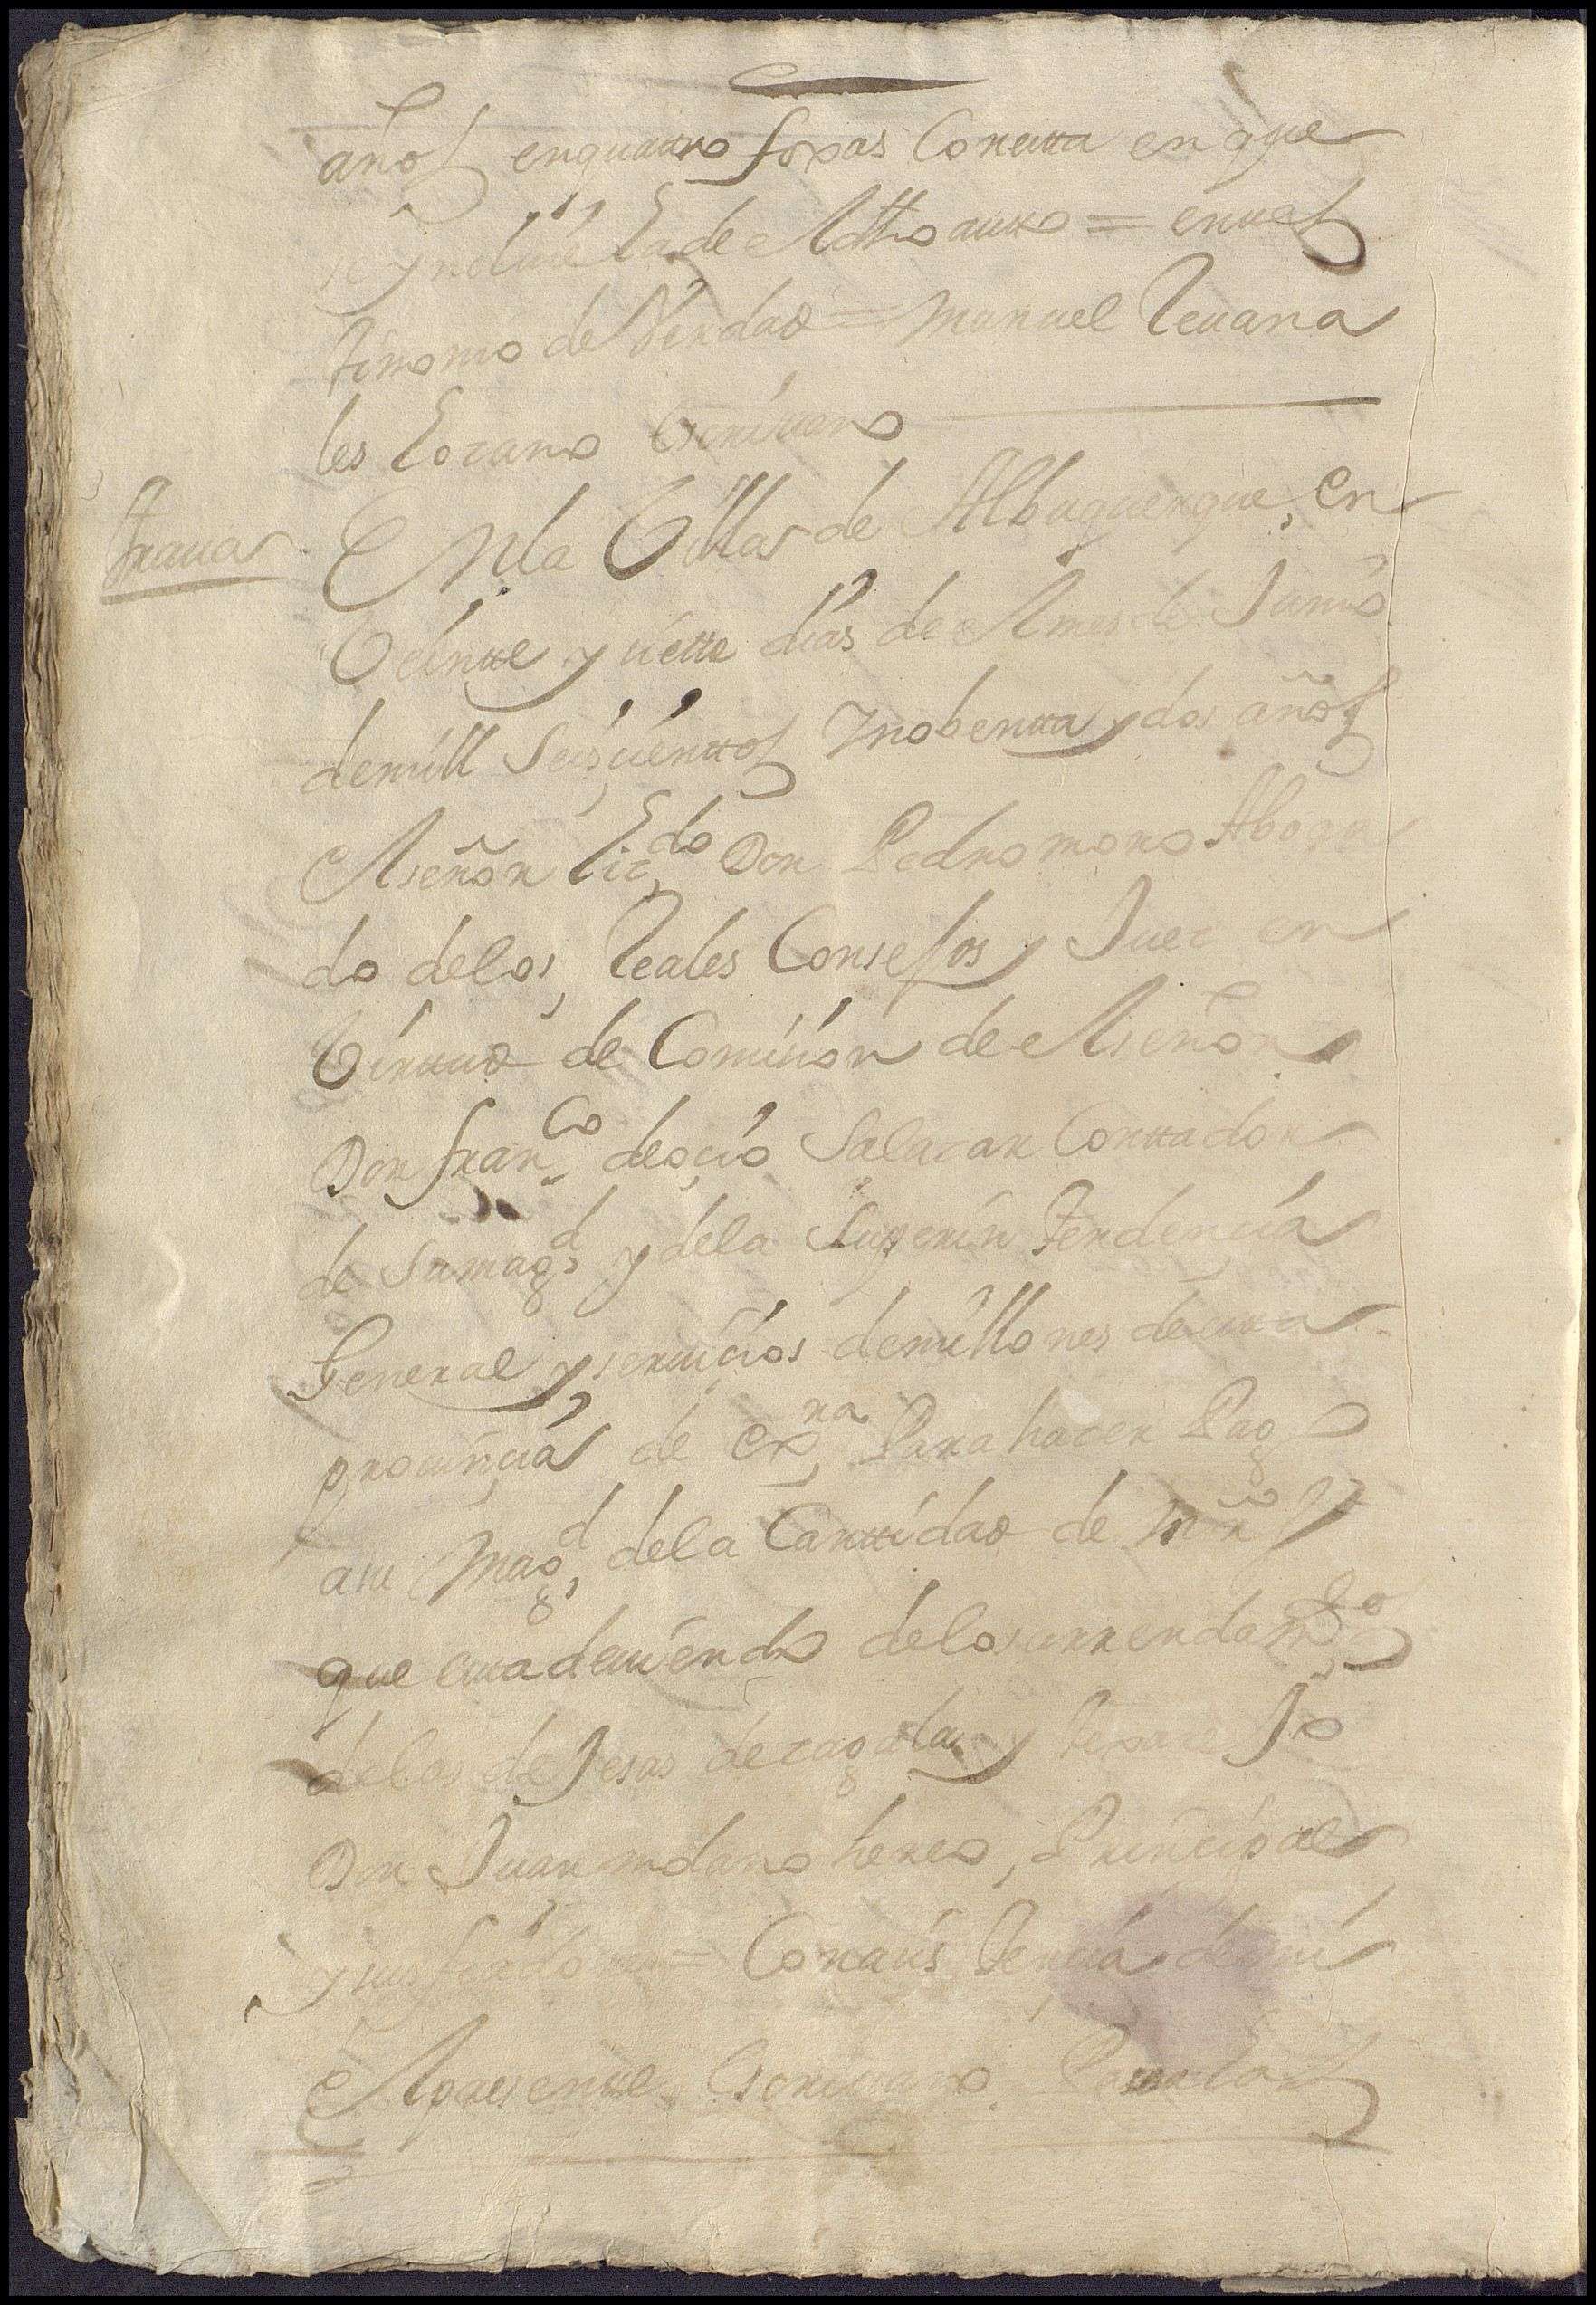 años enquatro foxas Con esta en que
se yncluie la de Ottro autto = en tes
timonio de Verdad = Manuel Reuana
les Lozano Escriuano
Traua
En la Villa de Alburquerque, en
Veintte y siette dias del mes de Junio
de mill Seisçienttos Y nobentta y dos años
el señor Lizdo Don Pedro moro Aboga
do de los Reales Consejos y Juez en
Virttud de Comision del señor
Don franco de oçio Salazar Conttador
de Su magd y dela Superin tendencia
General y seruiçios de millones de esta
prouinçia de exra Para hazer Pago
a su Magd dela Canttidad de mrs
que estta deuiendo delos arrendamtos
delas dejesas de zagala y
Don Juan hereo, Prinçipal
y sus fiadores = Con asistençia de mi
el presentte Escriuano